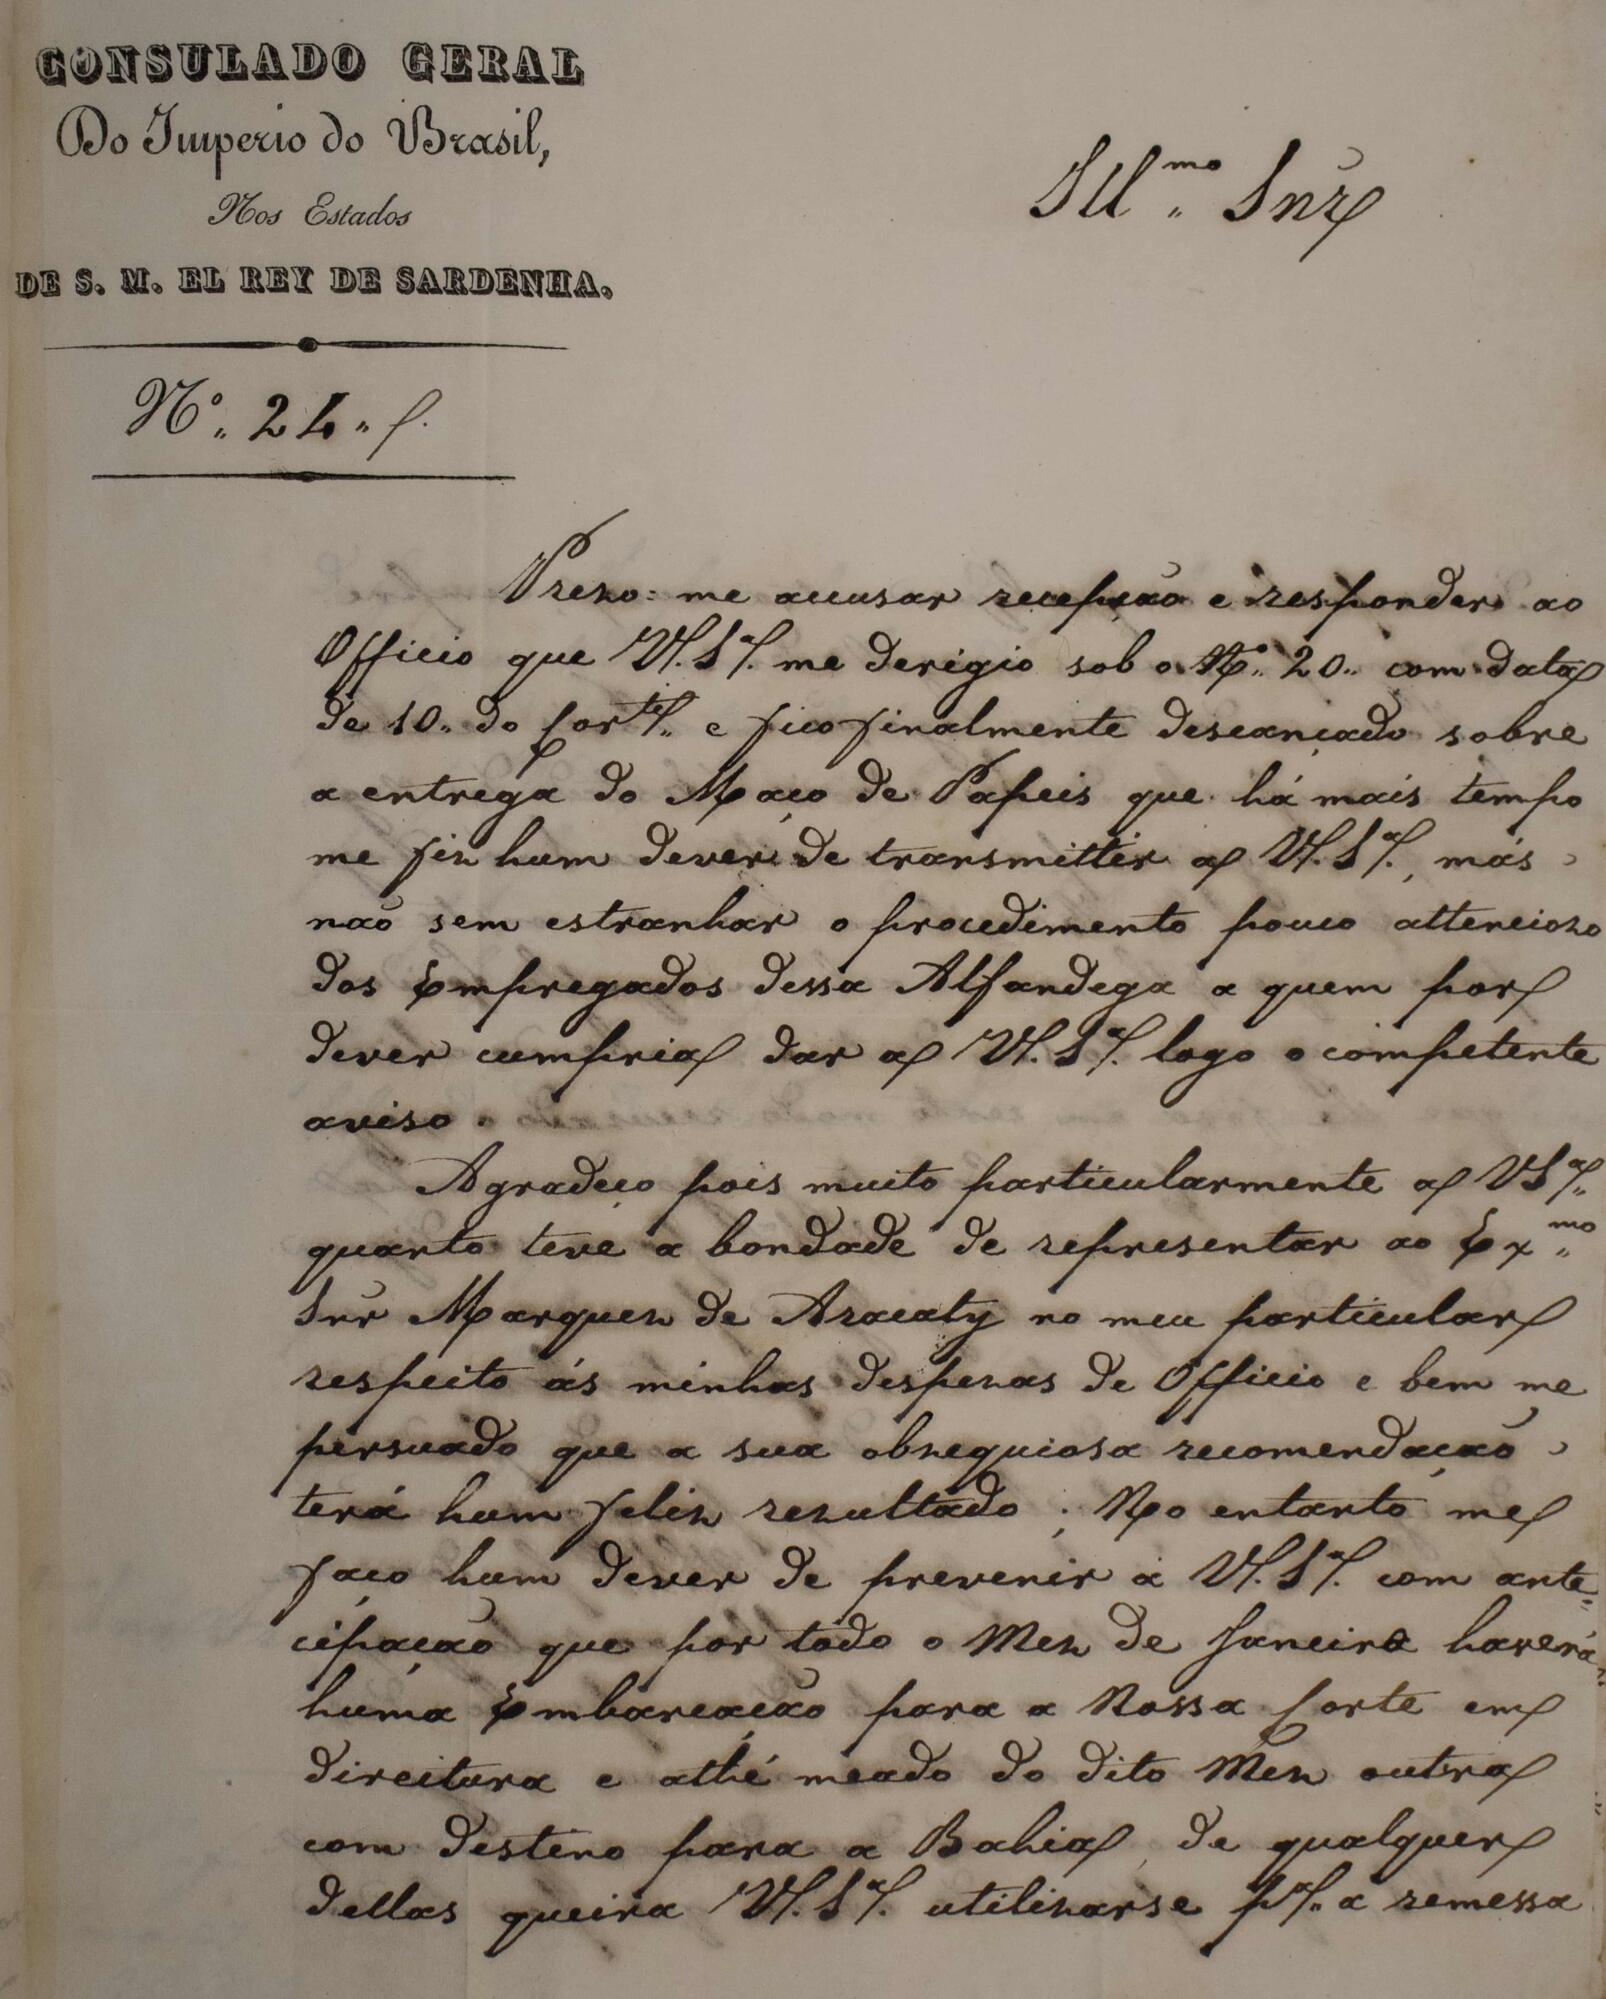 CONSULADO GERAL
Do Imperio do Brasil,
Nos Estados
DE S. M. EL REY DE SARDENHA.
Nº. 24.
Illmo. Snr
Prezo-me accusar recepção e responder ao
Officio que V.Sª. me derigio sob o Nº. 20. com data
de 10. do Corte. e fico finalmente descançado sobre
a entrega do Maço de Papeis que há mais tempo
me fiz hum dever de transmittir a V.Sª., más
não sem estranhar o procedimento pouco attenciozo
dos Empregados dessa Alfandega a quem por
dever cumpria dar a V.Sª. logo o competente
aviso.
Agradeço pois muito particularmente a VSª.
quanto teve a bondade de representar ao Exmo.
Snr Marquez de Aracaty no meu particular
respeito ás minhas despezas de Officio e bem me
persuado que a sua obzequiosa recomendação
terá hum feliz rezultado; No entanto me
faço hum dever de prevenir a V.Sª. com ante-
cipação que por todo o Mez de Janeiro haverá
huma Embarcação para a Nossa Corte em
direitura e athé meado do dito Mez outra
com destino para a Bahia, de qualquer
dellas queira V.Sª. utilizarse pª. a remessa